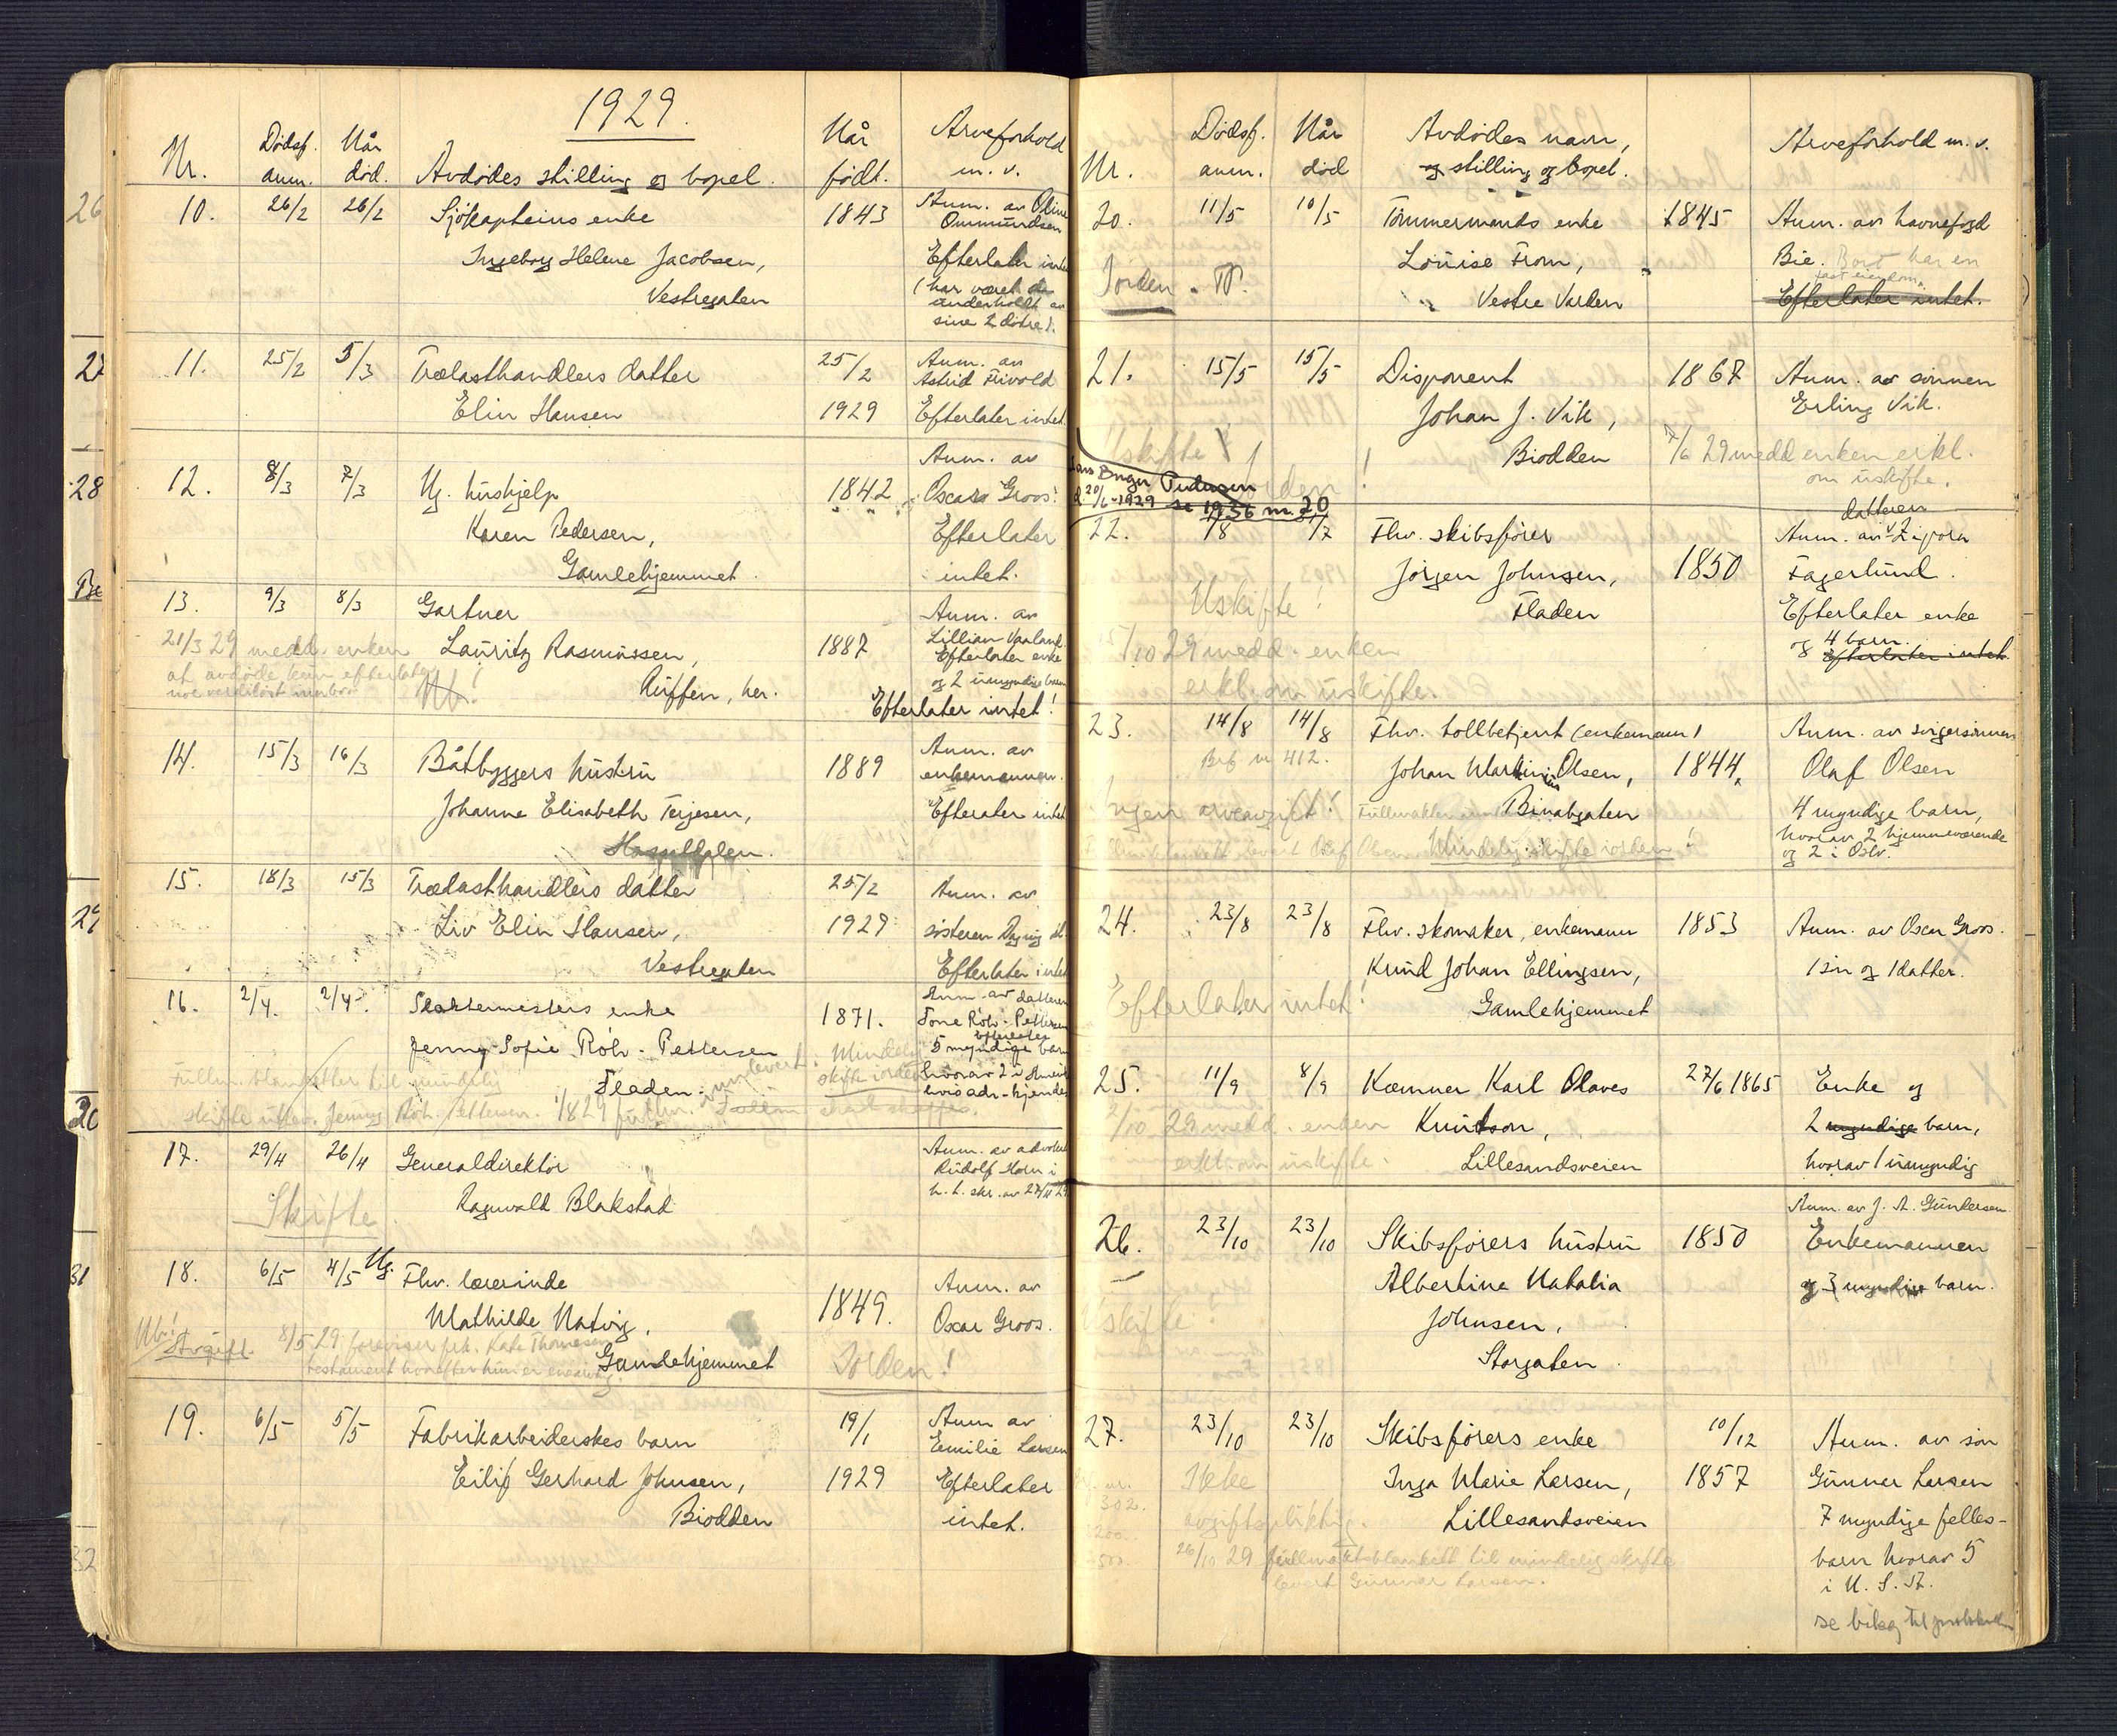 1929.
Nr. Dødsf. anm. Når død. Avdødes stilling og bopel. Når født. Arveforhold m. v.
10. 26/2 26/2 Sjökapteins enke 1843 Anm. av Oline
Ommundsen
Ingeborg Helene Jacobsen, Efterlater intet
Vestregaten (har været
underholdt av
sine 2 döttre).
11. 25/2 5/3 Trælasthandlers datter 25/2 Anm. av
Astrid Frivold
Elin Hansen 1929 Efterlater intet.
12. 8/3 7/3 Ug. hushjelp 1842 Anm. av
Oscar Groos.
Karen Pedersen, Efterlater
Gamlehjemmet. intet.
13. 9/3 8/3 Gartner Anm. av
21/3 29 medd. enken Lauritz Rasmussen, 1887 Lillian Vaaland.
at avdöde kun efterlater Efterlater enke
noe verdilöst innbo og 2 umyndige barn
Nb.! Auffen, her. Efterlater intet!
14. 15/3 16/3 Båtbyggers hustru 1889 Anm. av
enkemannen.
Johanne Elisabeth Terjesen, Efterater intet
15. 18/3 15/3 Trælasthandlers datter 25/2 Anm. av
Liv Elin Hansen, 1929 søsteren
Vestregaten Efterlater intet
16. 2/4. 2/4. enke 1871. Anm. av datteren
Tone Röhr-Pettersen
Jenny Sofie Röhr-Pettersen efterlater
5 myndige barn
Fladen. Mindelig skifte i orden hvorav 2 i
hvis adr. kjendes
skifte Jenny Röhr Pettersen.
17. 29/4 26/4 Generaldirektør Anm. av advokat
Rudolf Horn i
Skifte Ragnvald Blakstad h. t. skr. av 27/4 29
18. 6/5 4/5 Ug. Fhv. lærerinde 1849. Anm. av
Mathilde Natvig, Oscar Groos.
Nb! Avgift. 8/5 29 foreviser frk. Kate Thomesen
testament hvorefter hun er enearving. Gamlehjemmet I orden!
19. 6/5 5/5 Fabrikarbeiderskes barn 19/1 Anm av
Emilie Larsen
Eilif Gerhard Johnsen, 1929 Efterlater
Biodden intet.
26
27
28
29
31
32
Nr. Dødsf. anm. Når död Avdödes navn, og stilling og bopel. Arveforhold m. v.
20. 11/5 10/5 Tömmermands enke 1845 Anm. av havnefogd
I orden. Louise From, Bie. Bort har en
fast eiendom.
Vestre Varden Efterlater intet.
21. 15/5 15/5 Disponent 1867 Anm. av sönnen
Johan J. Vik, Erling Vik.
Uskifte! Biodden 7/6 29 medd enken erkl.
om uskifte.
Birger Pedersen
d. 20/6-1929 se 1936 nr. 20
22. 1/8 31/7 Fhv. skibsförer datteren
Anm. av
Jörgen Johnsen, 1850 Fagerlund.
Uskifte! Fladen Efterlater enke
og 4 barn.
Efterlater intet.
5/10 29 medd. enken
erkl. om uskifte.
23. 14/8 14/8 Fhv. tollbetjent (enkemann) Anm. av svigersönnen
Brf nr 412. Johan Martinius Olsen, 1844, Olaf Olsen
Ingen arveavgift! Binabgaten 4 myndige barn,
hvorav 2 hjemmeværende
og 2 i Oslo.
Mindelig skifte i orden!
24. 23/8 23/8 Fhv. skomaker, enkemann 1853 Anm. av Oscar Groos.
Knud Johan Ellingsen, 1 sön og 1 datter.
Efterlater intet! Gamlehjemmet
25. 11/9 8/9 Kæmner Karl Olaves 27/6 1865 Enke og
2/10 29 medd. enken Knutson, 2 myndige barn,
erkl. om uskifte. Lillesandsveien hvorav 1 umyndig
Anm. av J. A. Gundersen
26. 23/10 23/10 Skibsförers hustru 1850 Enkemannen
Albertine Natalia og 3 myndige barn.
Uskifte! Johnsen,
Storgaten
27. 23/10 23/10 Skibsförers enke 10/12 Anm. av sön
Ikke Inga Marie Larsen, 1857 Gunnar Larsen
avgiftspliktig. Lillesandsveien 7 myndige felles-
26/10 29 fullmaktsblankett til mindelig skifte barn hvorav 5
levert Gunnar Larsen. i U. S. A.
se bilag til protokollen